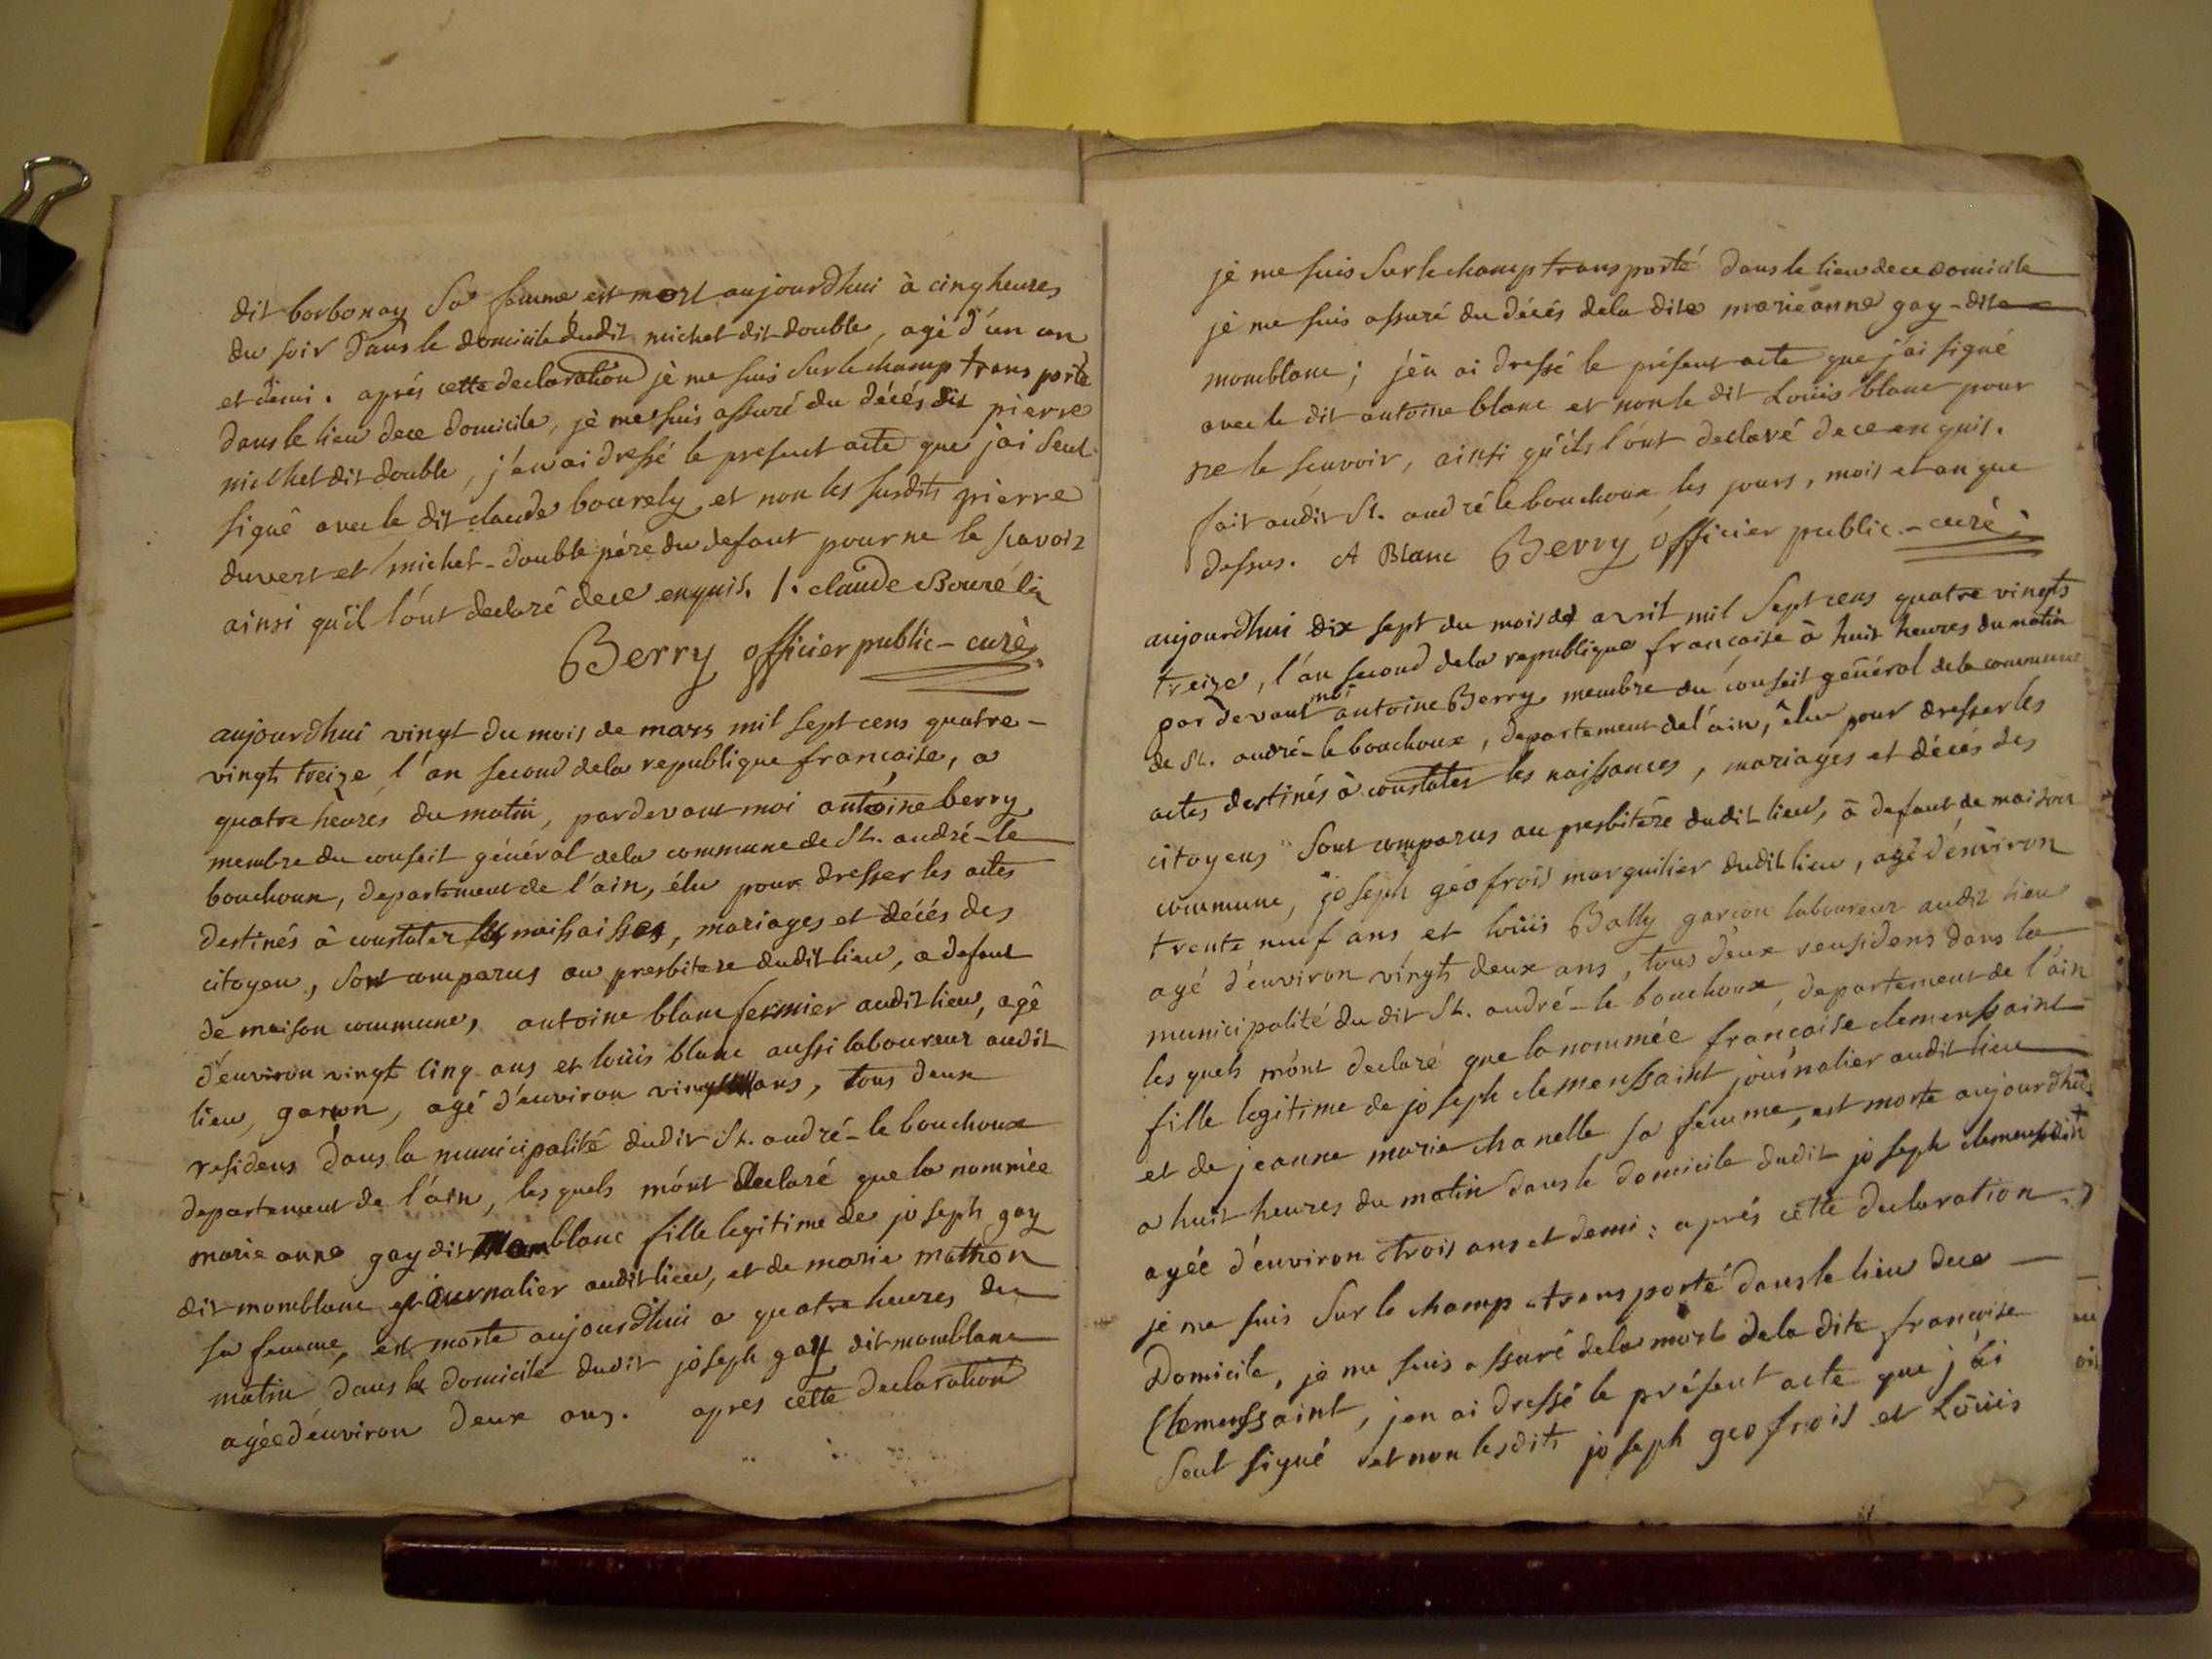 dit borbonay sa femme est mort aujourdhui à cinq heures
du soir dans le domicile dudit michel dit double, agé d'un an
et demi. aprés cette declaration jè me suis sur le champ transporté
dans le lieu de ce domicile, jè me suis assuré du décés dit pierre
michel dit double, j'en ai dressé le present acte que j'ai seul
signé avec le dit claude bourely et non les susdits pierre
duvert et michel-double pére du defunt pour ne le scavoir
ainsi qu'il l'ont declaré de ce enquis. /. claude Bouréli
Berry officier public - curé
aujourdhui vingt du mois de mars mil sept cens quatre-
vingts treize, l'an second de la republique francaise, a
quatre heures du matin, pardevant moi antoine berry
membre du conseil général de la commune de St. andré-le
bouchoux, departement de l'ain, élu pour dresser les actes
destinés à constater les naissaisses, mariages et décés des
citoyen, sont comparus au presbitere dudit lieu, a defaut
de maison commune, antoine blanc fermier audit lieu, agé
d'environ vingt cinq ans et loüis blanc aussi laboureur audit
lieu, garcon, agé d'environ vingt ans, tous deux
residens dans la municipalité dudit St. andré-le bouchoux
departement de l'ain, les quels m'ont declaré que la nommée
marie anne gay dit momblanc fille legitime de joseph gay
dit momblanc journalier audit lieu, et de marie mathon
sa femme, est morte aujourdhui a quatre heures du
matin dans le domicile dudit joseph gay dit momblanc
agée d'environ deux ans. apres cette declaration
jè me suis sur le champ transporté dans le lieu de ce domicile
jè me suis assuré du décés de la dite marie anne gay-dite
momblanc; j'en ai dressé le présent acte que j'ai signé
avec le dit antoine blanc et non le dit Loüis blanc pour
ne le scavoir, ainsi qu'ils l'ont declaré de ce enquis.
fait audit St. andré le bouchoux les jours, mois et an que
dessus. A Blanc Berry officier public - curé
aujourdhui dix sept du mois de avril mil sept cens quatre vingts
treize, l'an second de la republique francaise à huit heures du matin
par devant moi antoine Berry membre du conseil général de la commune
de St. andré-le bouchoux, departement de l'ain, élu pour dresser les
actes destinés à constater les naissances, mariages et décés des
citoyens sont comparus au presbitére dudit lieu, à defaut de maison
commune, joseph géofrois marguilier dudit lieu, agé d'environ
trente neuf ans et loüis Bally garcon laboureur audit lieu
agé d'environ vingts deux ans, tous deux residens dans la
municipalité du dit St. andré-le bouchoux, departement de l'ain
les quels m'ont declaré que la nommée francaise clemenssaint
fille legitime de joseph clemenssaint journalier audit lieu
et de jeanne marie chanelle sa femme, est morte aujourdhui
a huit heures du matin dans le domicile dudit joseph clemenssaint
agée d'environ trois ans et demi: aprés cette declaration
je me suis sur le champ transporté dans le lieu de ce
Domicile, je me suis assuré de la mort de la dite francoise
Clemenssaint, j'en ai dressé le présent acte que j'ai
seul signé et non lesdits joseph geofrois et Loüis